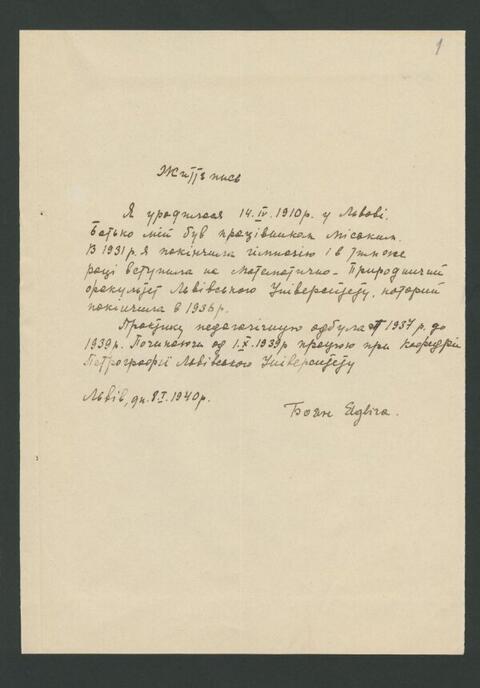 1
Життєпись
Я уродилася 14.IV.1910р. у Львові.
Батько мій був працівником міським.
В 1931 р. я покінчила гімназію і в тімже
році вступила на Математично-Природничий
факультет Львівського Університету, который
покінчила в 1936 р.
Практику педагогічную одбула от 1937 р. до
1939 р. Починаючи од 1.X.1939р працюю при кафедрі
Петрографії Львівського Університету
Львів, дн. 8.I.1940р.
Боян Ядвіга.